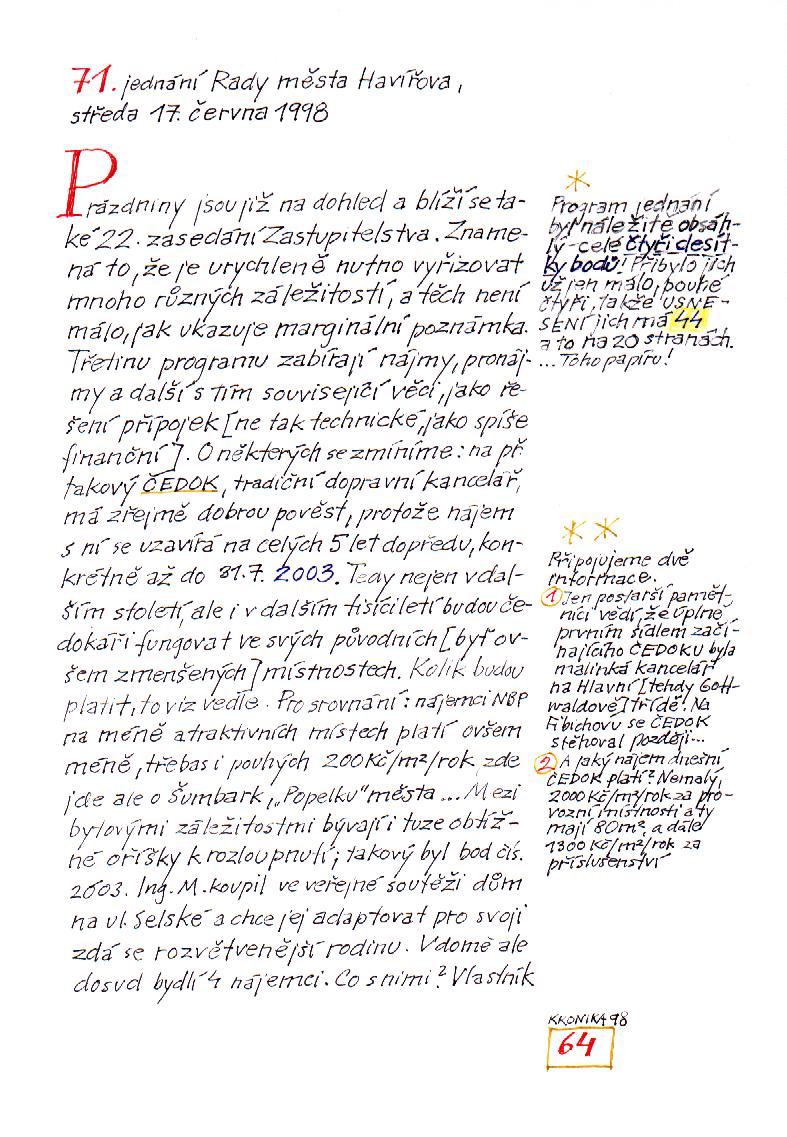 71. jednání Rady města Havířova,
středa 17. června 1998
Prázdniny jsou již na dohled a blíží se ta-
ké 22. zasedání Zastupitelstva. Zname-
ná to, že je urychleně nutno vyřizovat
mnoho různých záležitostí, a těch není
málo, jak ukazuje marginální poznámka.
Třetinu programu zabírají nájmy, pronáj-
my a další s tím související věci, jako ře-
šení přípojek [ne tak technické, jako spíše
finanční]. O některých se zmíníme: na př.
takový ČEDOK, tradiční dopravní kancelář,
má zřejmě dobrou pověst, protože nájem
s ní se uzavírá na celých 5 let dopředu, kon-
krétně až do 31.7. 2003. Tedy nejen v dal-
ším století, ale i v dalším tisíciletí budou če-
dokáři fungovat ve svých původních [byť ov-
šem zmenšených] místnostech. Kolik budou
platit, to viz vedle. Pro srovnání: nájemci NBP
na méně atraktivních místech platí ovšem
méně, třebas i pouhých 200 Kč/m²/rok zde
jde ale o Šumbark, "Popelku" města... Mezi
bytovými záležitostmi bývají i tuze obtíž-
né oříšky k rozloupnutí; takový byl bod čís.
2003. Ing. M. koupil ve veřejné soutěži dům
na ul. Selské a chce jej adaptovat pro svoji
zdá se rozvětvenější rodinu. V domě ale
dosud bydlí 4 nájemci. Co s nimi? Vlastník
*
Program jednání
byl náležitě obsáh-
lý - celé čtyři desít-
ky bodů! Přibylo jich
už jen málo, pouhé
čtyři, takže USNE-
SENÍ jich má 44
a to na 20 stranách.
... Toho papíru!
* *
Připojujeme dvě
informace.
1 Jen postarší pamět-
níci vědí, že úplně
prvním sídlem začí-
najícího ČEDOKU byla
malinká kancelář
na Hlavní [tehdy Gott-
waldově] třídě. Na
Fibichovu se ČEDOK
stěhoval později...
2 A jaký nájem dnešní
ČEDOK platí? Nemalý,
2000 Kč/m²/rok za pro-
vozní místnosti a ty
mají 80 m², a dále
1300 Kč/m²/rok za
příslušenství
KRONIKA 98
64